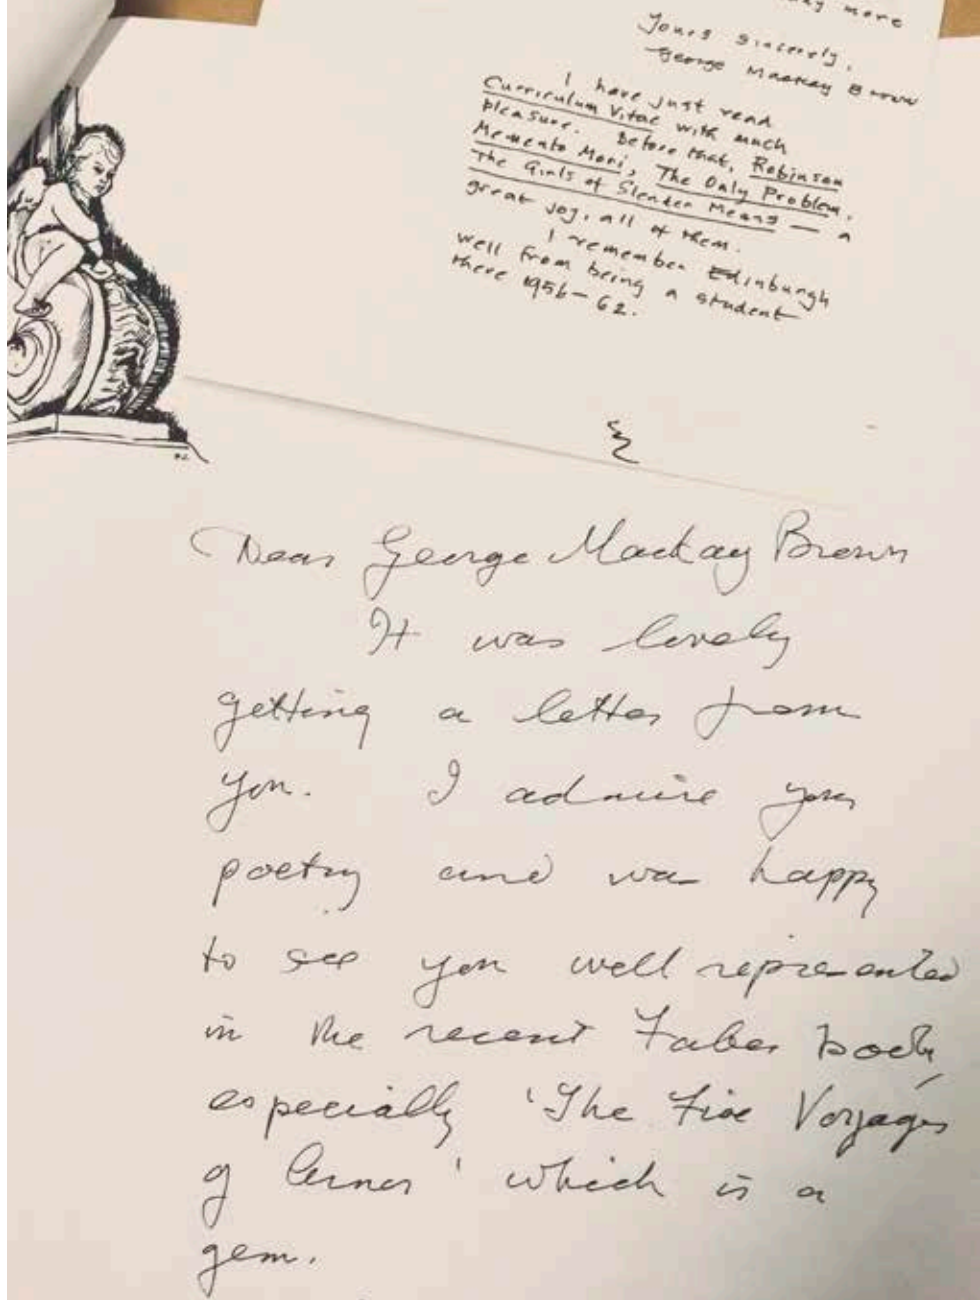 more
Yours sincerely,
George Mackay Brown
I have just read
Curriculum Vitae with much
pleasure. Before that, Robinson
Memento Mori, The Only Problem,
The Girls of Slender Means — a
great joy, all of them.
I remember Edinburgh
well from being a student
there 1956-62.
Dear George Mackay Brown
It was lovely
getting a letter from
you. I admire your
poetry and was happy
to see you well represented
in the recent Faber book,
especially 'The Five Voyages
of Arnor' which is a
gem.